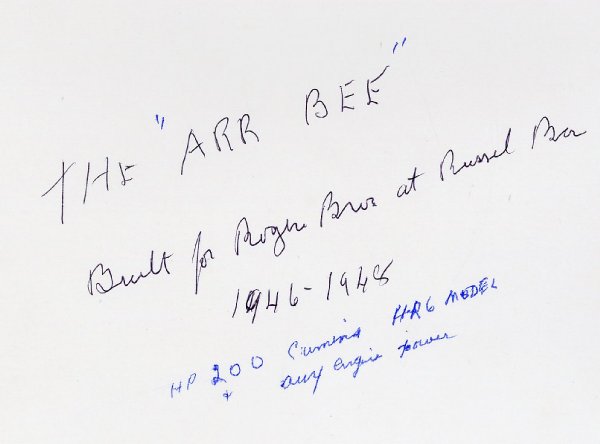 THE "ARR BEE"
Built for Rogers Bros at Russel Bar
1946-1948
HP 200 Cummins HR6 MODEL
+ aux engine power